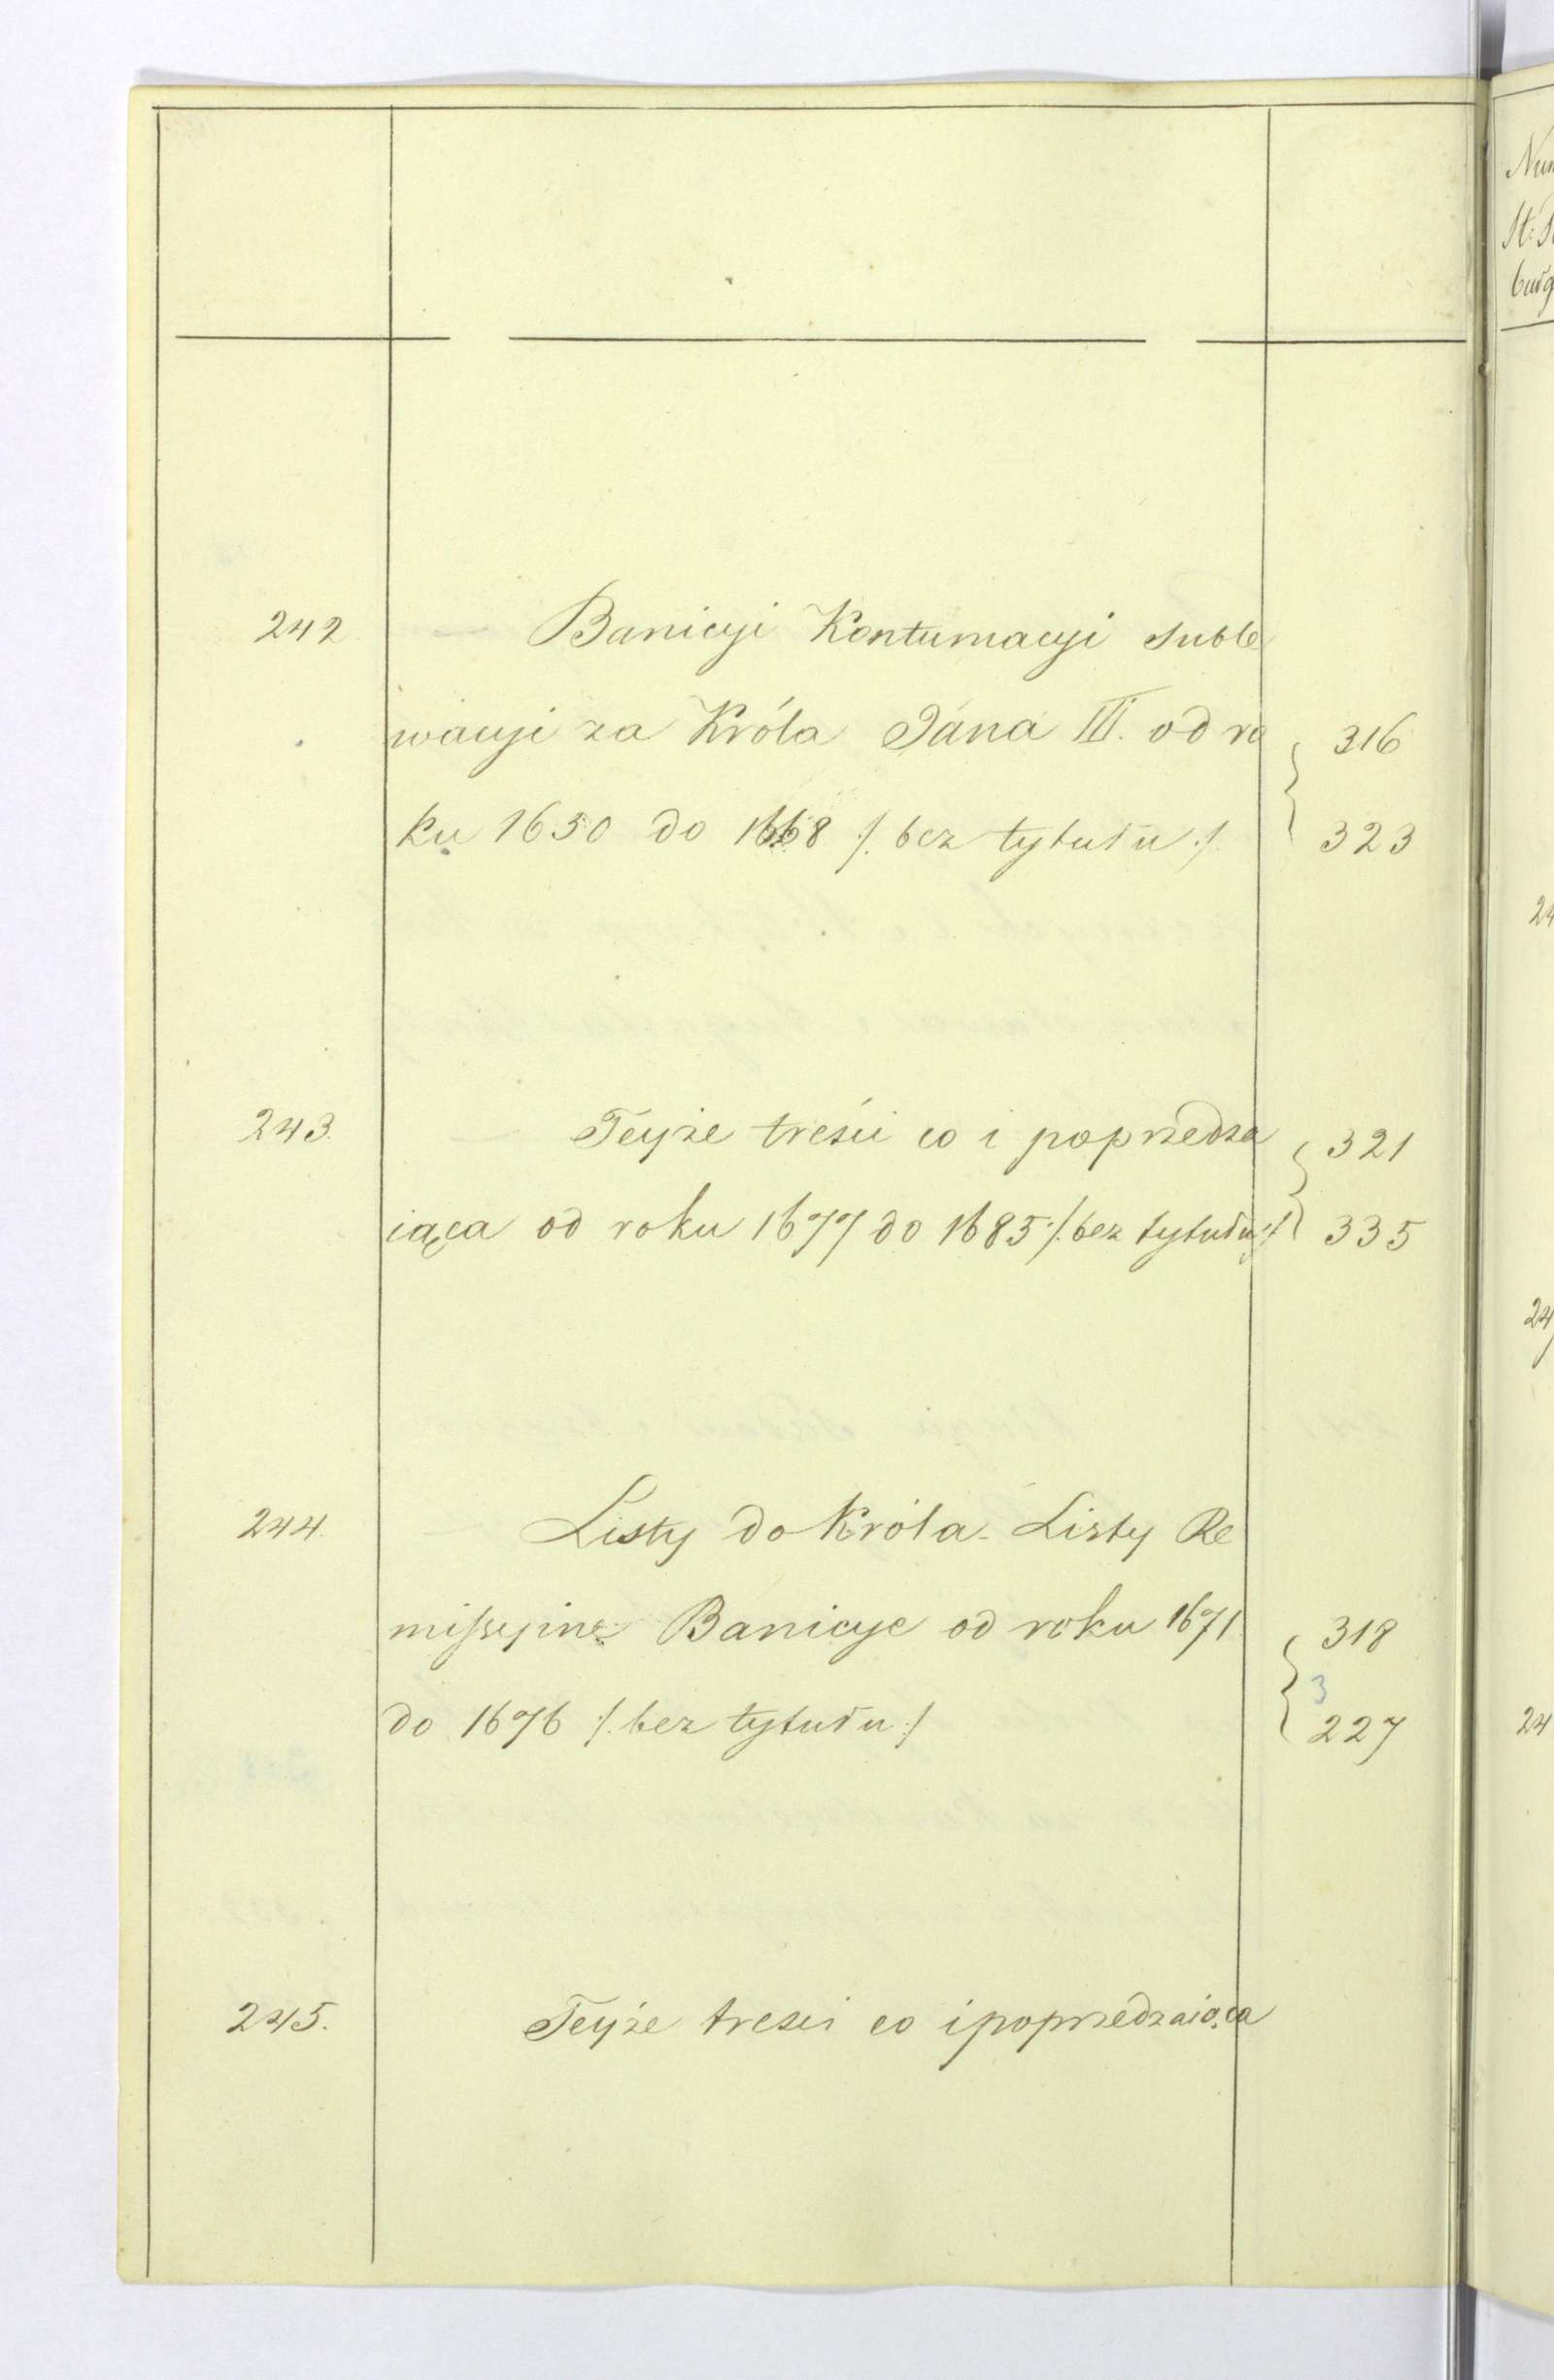 242 Banicyi Kontumacyi Suble
wacyi za Króla Jana III. od ro 316
ku 1650 do 1668 /. bez tytułu ./. 323
243. Teyże treści co i poprzedza 321
iąca od roku 1677 do 1685 /. bez tytułu ./ 335
244. Listy do Króla. Listy Re
missyine Banicye od roku 1671 318
3
do 1676 /. bez tytułu ./ 227
245. Teyże tresci co i poprzedzaiąca